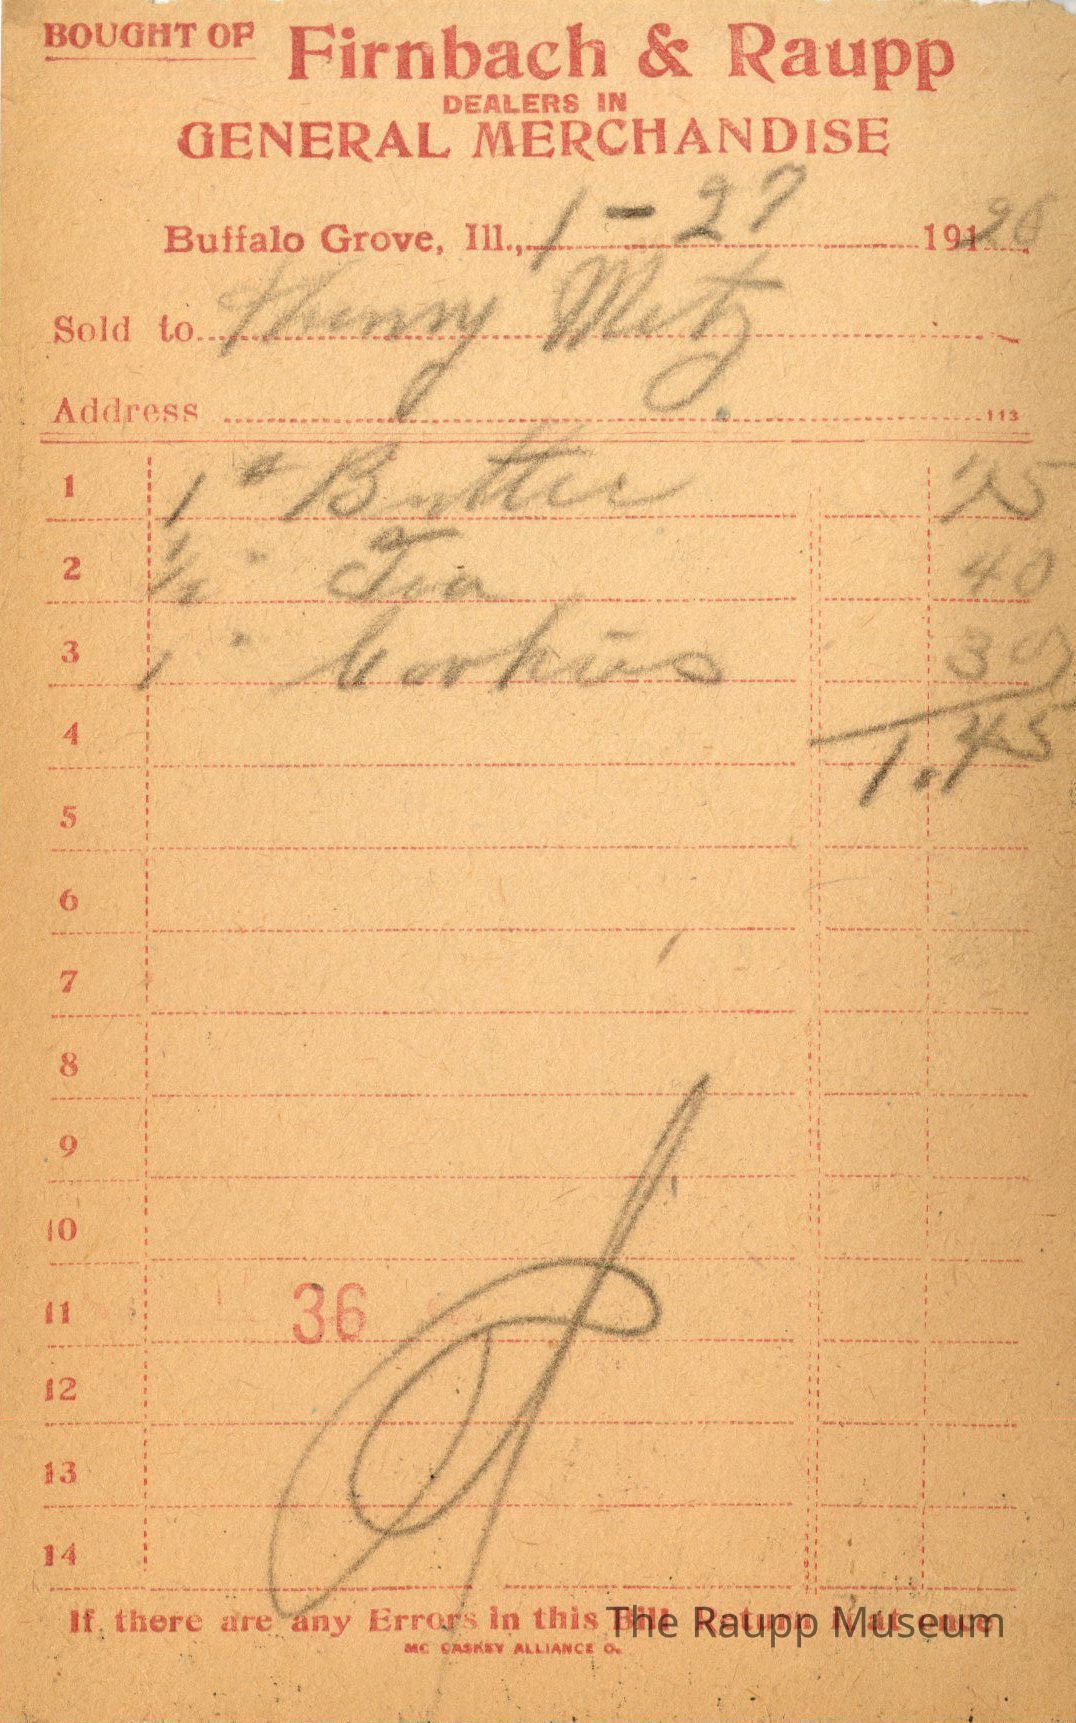 BOUGHT OF Firnbach & Raupp
DEALERS IN
GENERAL MERCHANDISE
Buffalo Grove, Ill., 1-27 191 20
Sold to Henry Metz
Address 113
1 1 # Butter 75
2 1/2 " Tea 40
3 1 " Cookies 30
4 1.45
5
6
7
8
9
10
11 36
12
13
14
If there are any Errors in this Bill Return it at once
The Raupp Museum
MC CASKEY ALLIANCE O.